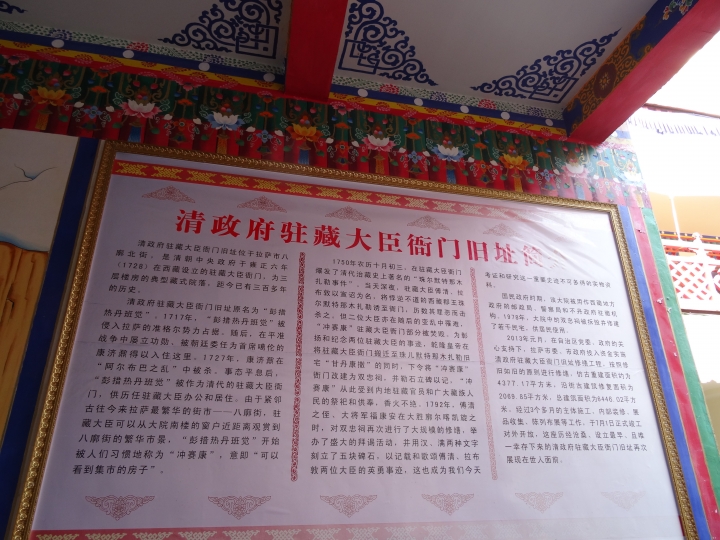 清政府驻藏大臣衙门旧址简
清政府驻藏大臣衙门旧址位于拉萨市八
廓北街，是清朝中央政府于雍正六年
（1728）在西藏设立的驻藏大臣衙门，为三
层楼房的典型藏式院落，距今已有三百多年
的历史。
清政府驻藏大臣衙门旧址原名为“彭措
热丹班觉”，1717年，“彭措热丹班觉”被
侵入拉萨的准格尔势力占据，随后，在平准
战争中屡立功勋、被朝廷委任为首席噶伦的
康济鼐得以入住这里。1727年，康济鼐在
“阿尔布巴之乱”中被杀，事态平息后，
“彭措热丹班觉”被作为清代的驻藏大臣衙
门，供历任驻藏大臣办公和居住。由于紧邻
古往今来拉萨最繁华的街市——八廓街，驻
藏大臣可以从大院南楼的窗户近距离观赏到
八廓街的繁华市景，“彭措热丹班觉”开始
被人们习惯地称为“冲赛康”，意即“可以
看到集市的房子”。
1750年农历十月初三，在驻藏大臣衙门
爆发了清代治藏史上著名的“珠尔默特那木
扎勒事件”。当天深夜，驻藏大臣傅清、拉
布敦以宣诏为名，将悖逆不道的西藏郡王珠
尔默特那木扎勒诱至衙门，历数其罪恶而击
杀之，但二位大臣亦在随后的变乱中罹难，
“冲赛康”驻藏大臣衙门部分被焚毁。为彰
扬和纪念两位驻藏大臣的事迹，乾隆皇帝在
将驻藏大臣衙门搬迁至珠儿默特那木扎勒旧
宅“甘丹康撒”的同时，下令将“冲赛康”
衙门改建为双忠祠，并勒石立碑以记，“冲
赛康”从此受到内地驻藏官员和广大藏族人
民的祭祀和供奉，香火不经。1792年，傅清
之侄、大将军福康安在大胜廓尔喀凯旋之
时，对双忠祠再次进行了大规模的修缮，举
办了盛大的拜谒活动，并用汉、满两种文字
刻立了五块碑石，以记载和歌颂傅清、拉布
敦两位大臣的英勇事迹，这也成为我们今天
考证和研究这一重要史迹不可多得的实物资
料。
国民政府时期，该大院被用作西藏地方
政府局邮政局、警察局和不丹政府驻藏机
构。1978年，大院中的双忠祠被拆毁并修建
了若干民宅，供居民使用。
2013年元月，在自治区党委、政府的关
心支持下，拉萨市委、市政府投入资金实施
清政府驻藏大臣衙门旧址修缮工程，按照修
旧如旧的原则进行维修，仿古重建面积约为
4377.17平方米，沿街立面修复面积为
2069.85平方米，总建筑面积为6446.02平方
米，经过3个多月的主体施工、内部装修、展
品收集、陈列布展等工作，于7月1日正式竣工
对外开放，这座历经沧桑、设立最早、且唯
一幸存下来的清政府驻藏大臣衙门旧址再次
展现在世人面前。